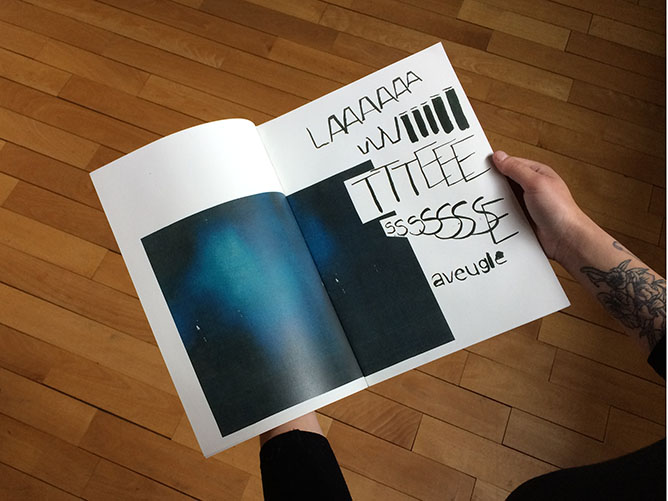 LAAAAAA
vVVIIIII
TTTEEE
sssSSSSE
aveugle